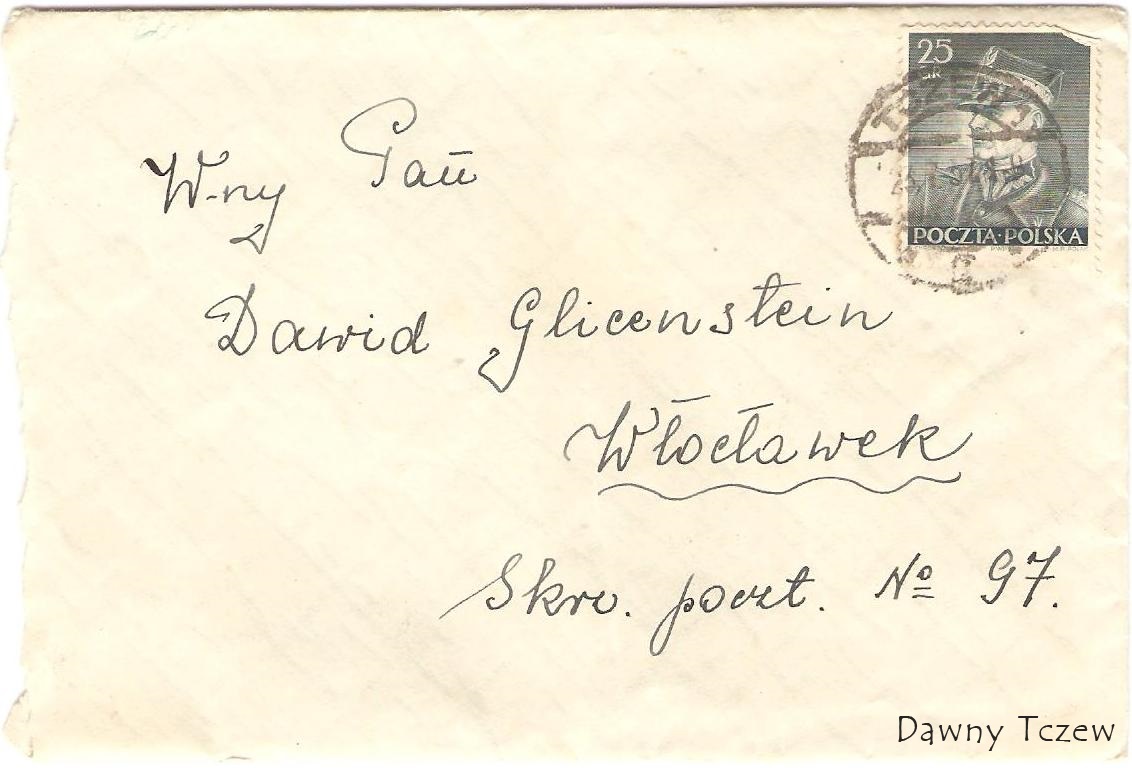 25
GR
TCZEW
POCZTA·POLSKA
W-ny Pan
Dawid Glicenstein
Włocławek
Skrv. poczt. Nº 97.
Dawny Tczew